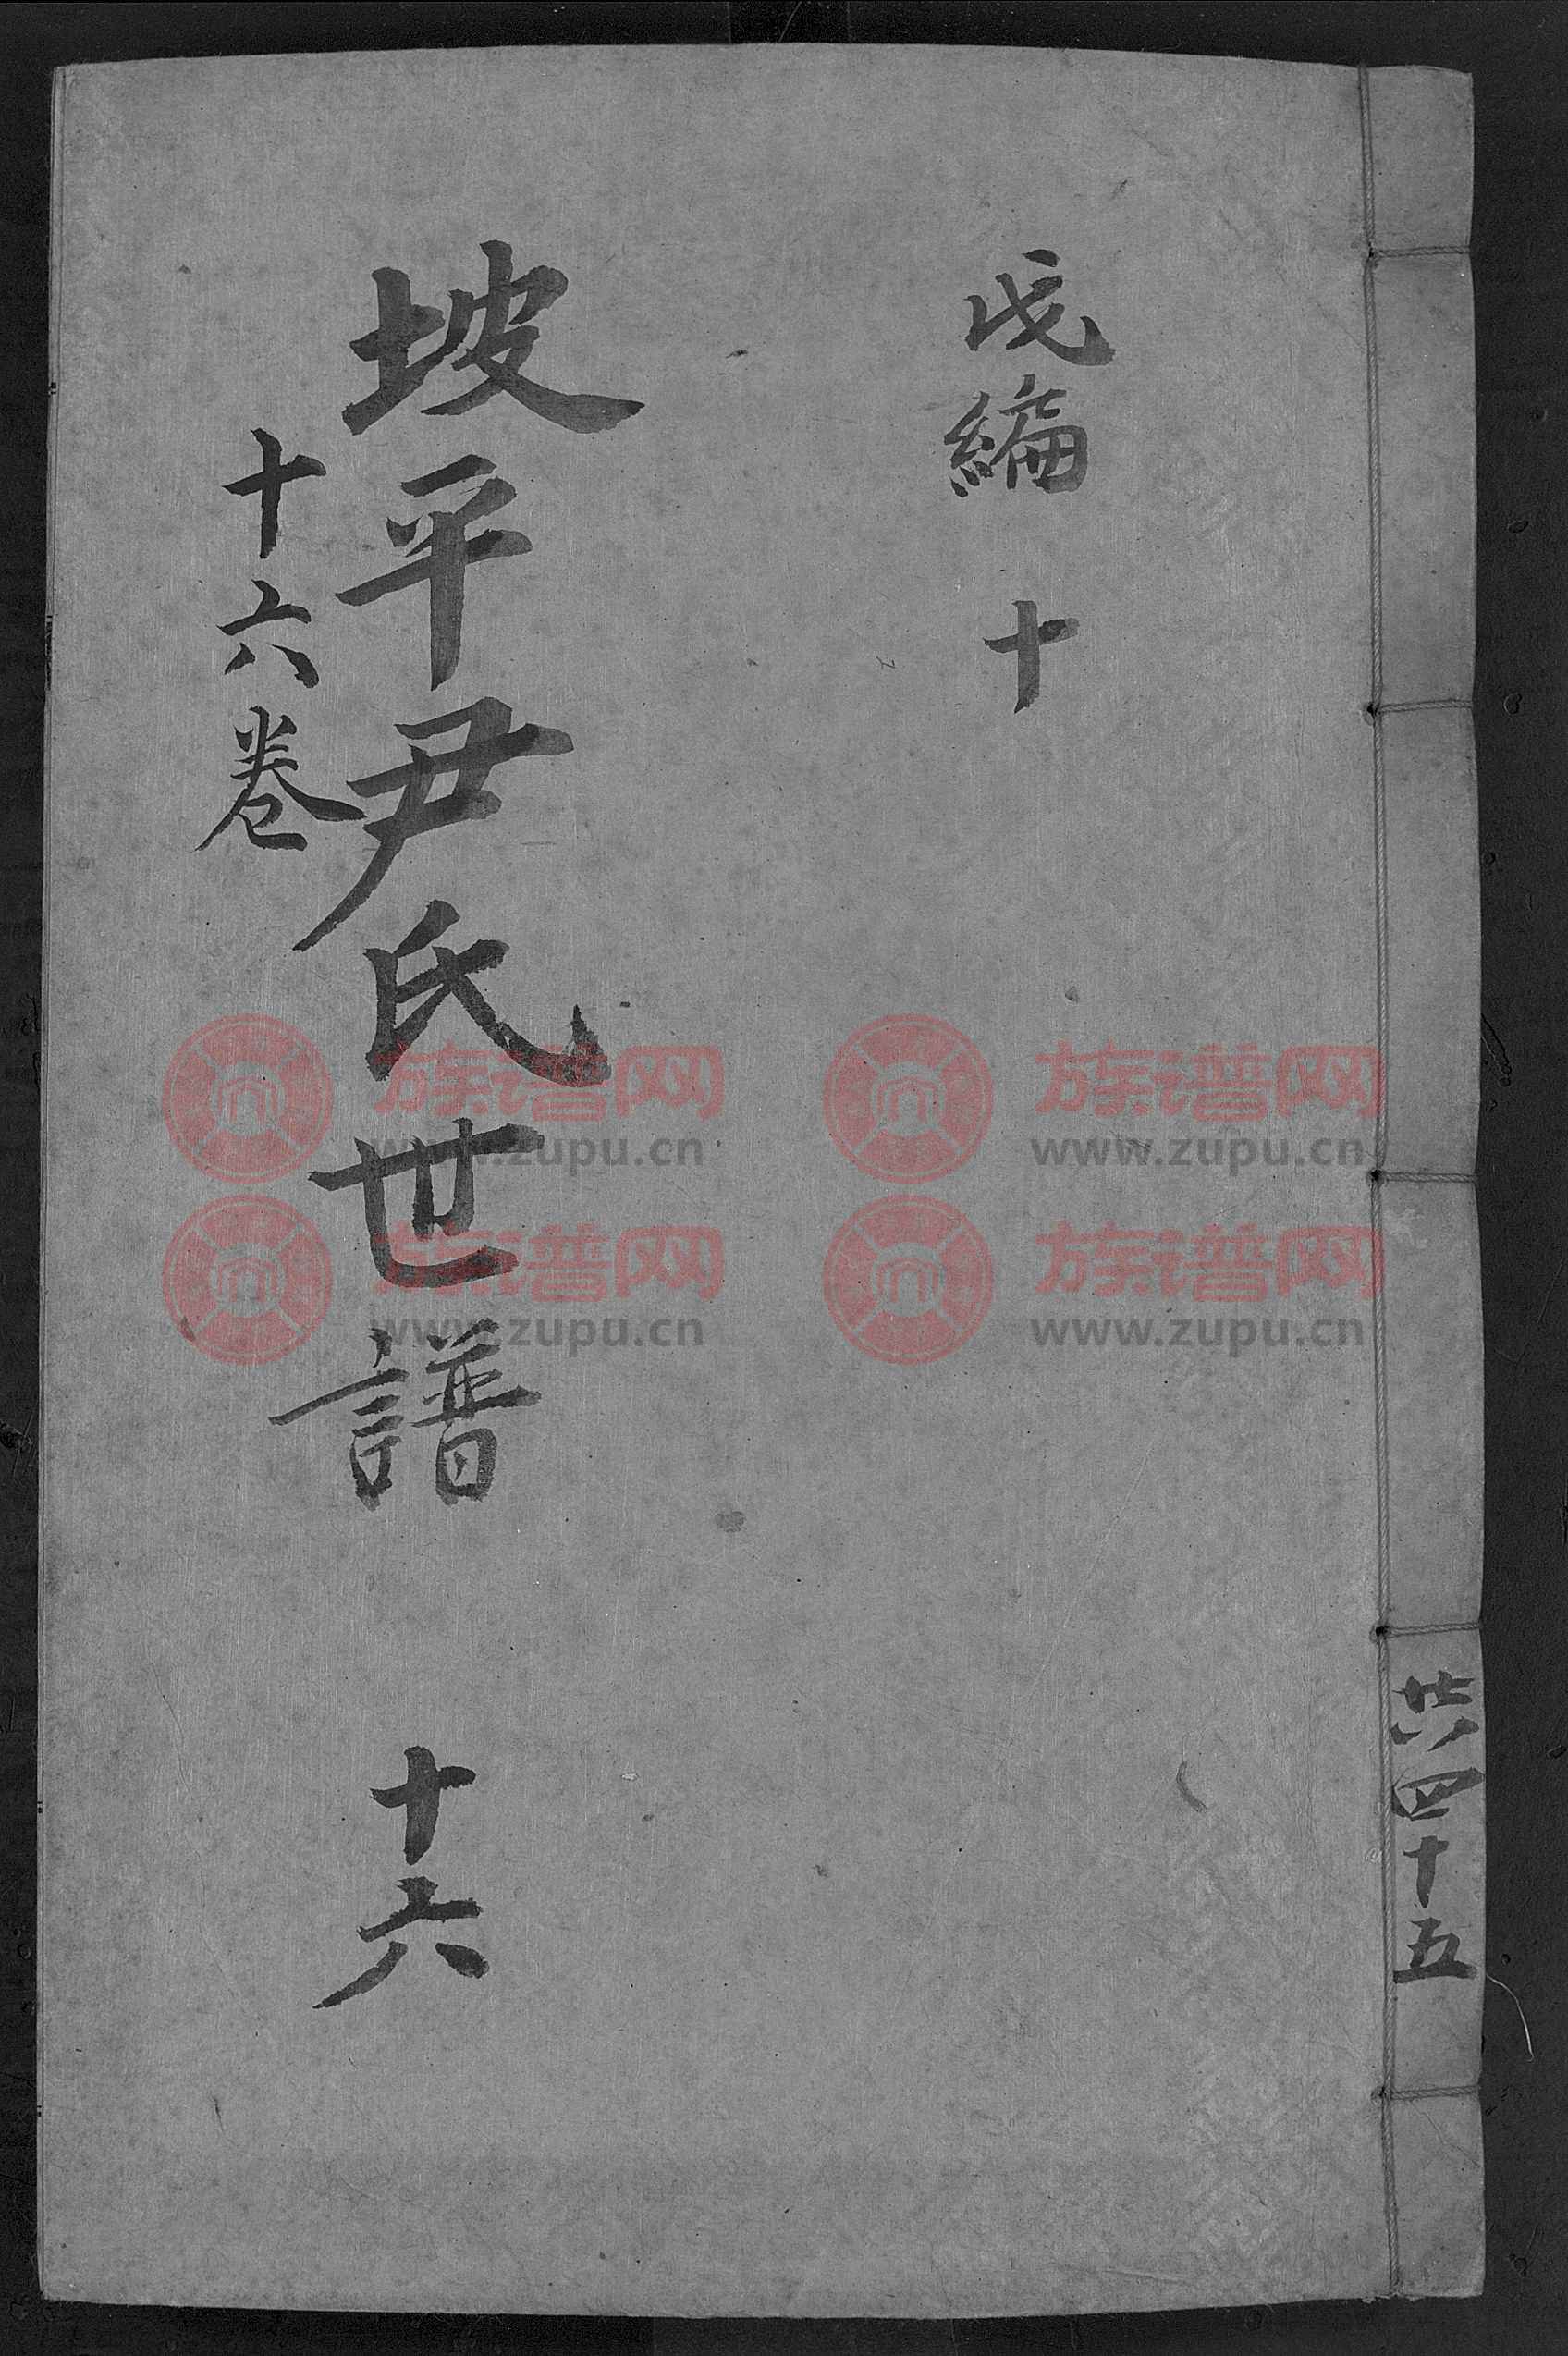 共四十五
戊編 十
坡平尹氏世譜 十六
十六卷
族谱网
www.zupu.cn
族谱网
www.zupu.cn
族谱网
www.zupu.cn
族谱网
www.zupu.cn